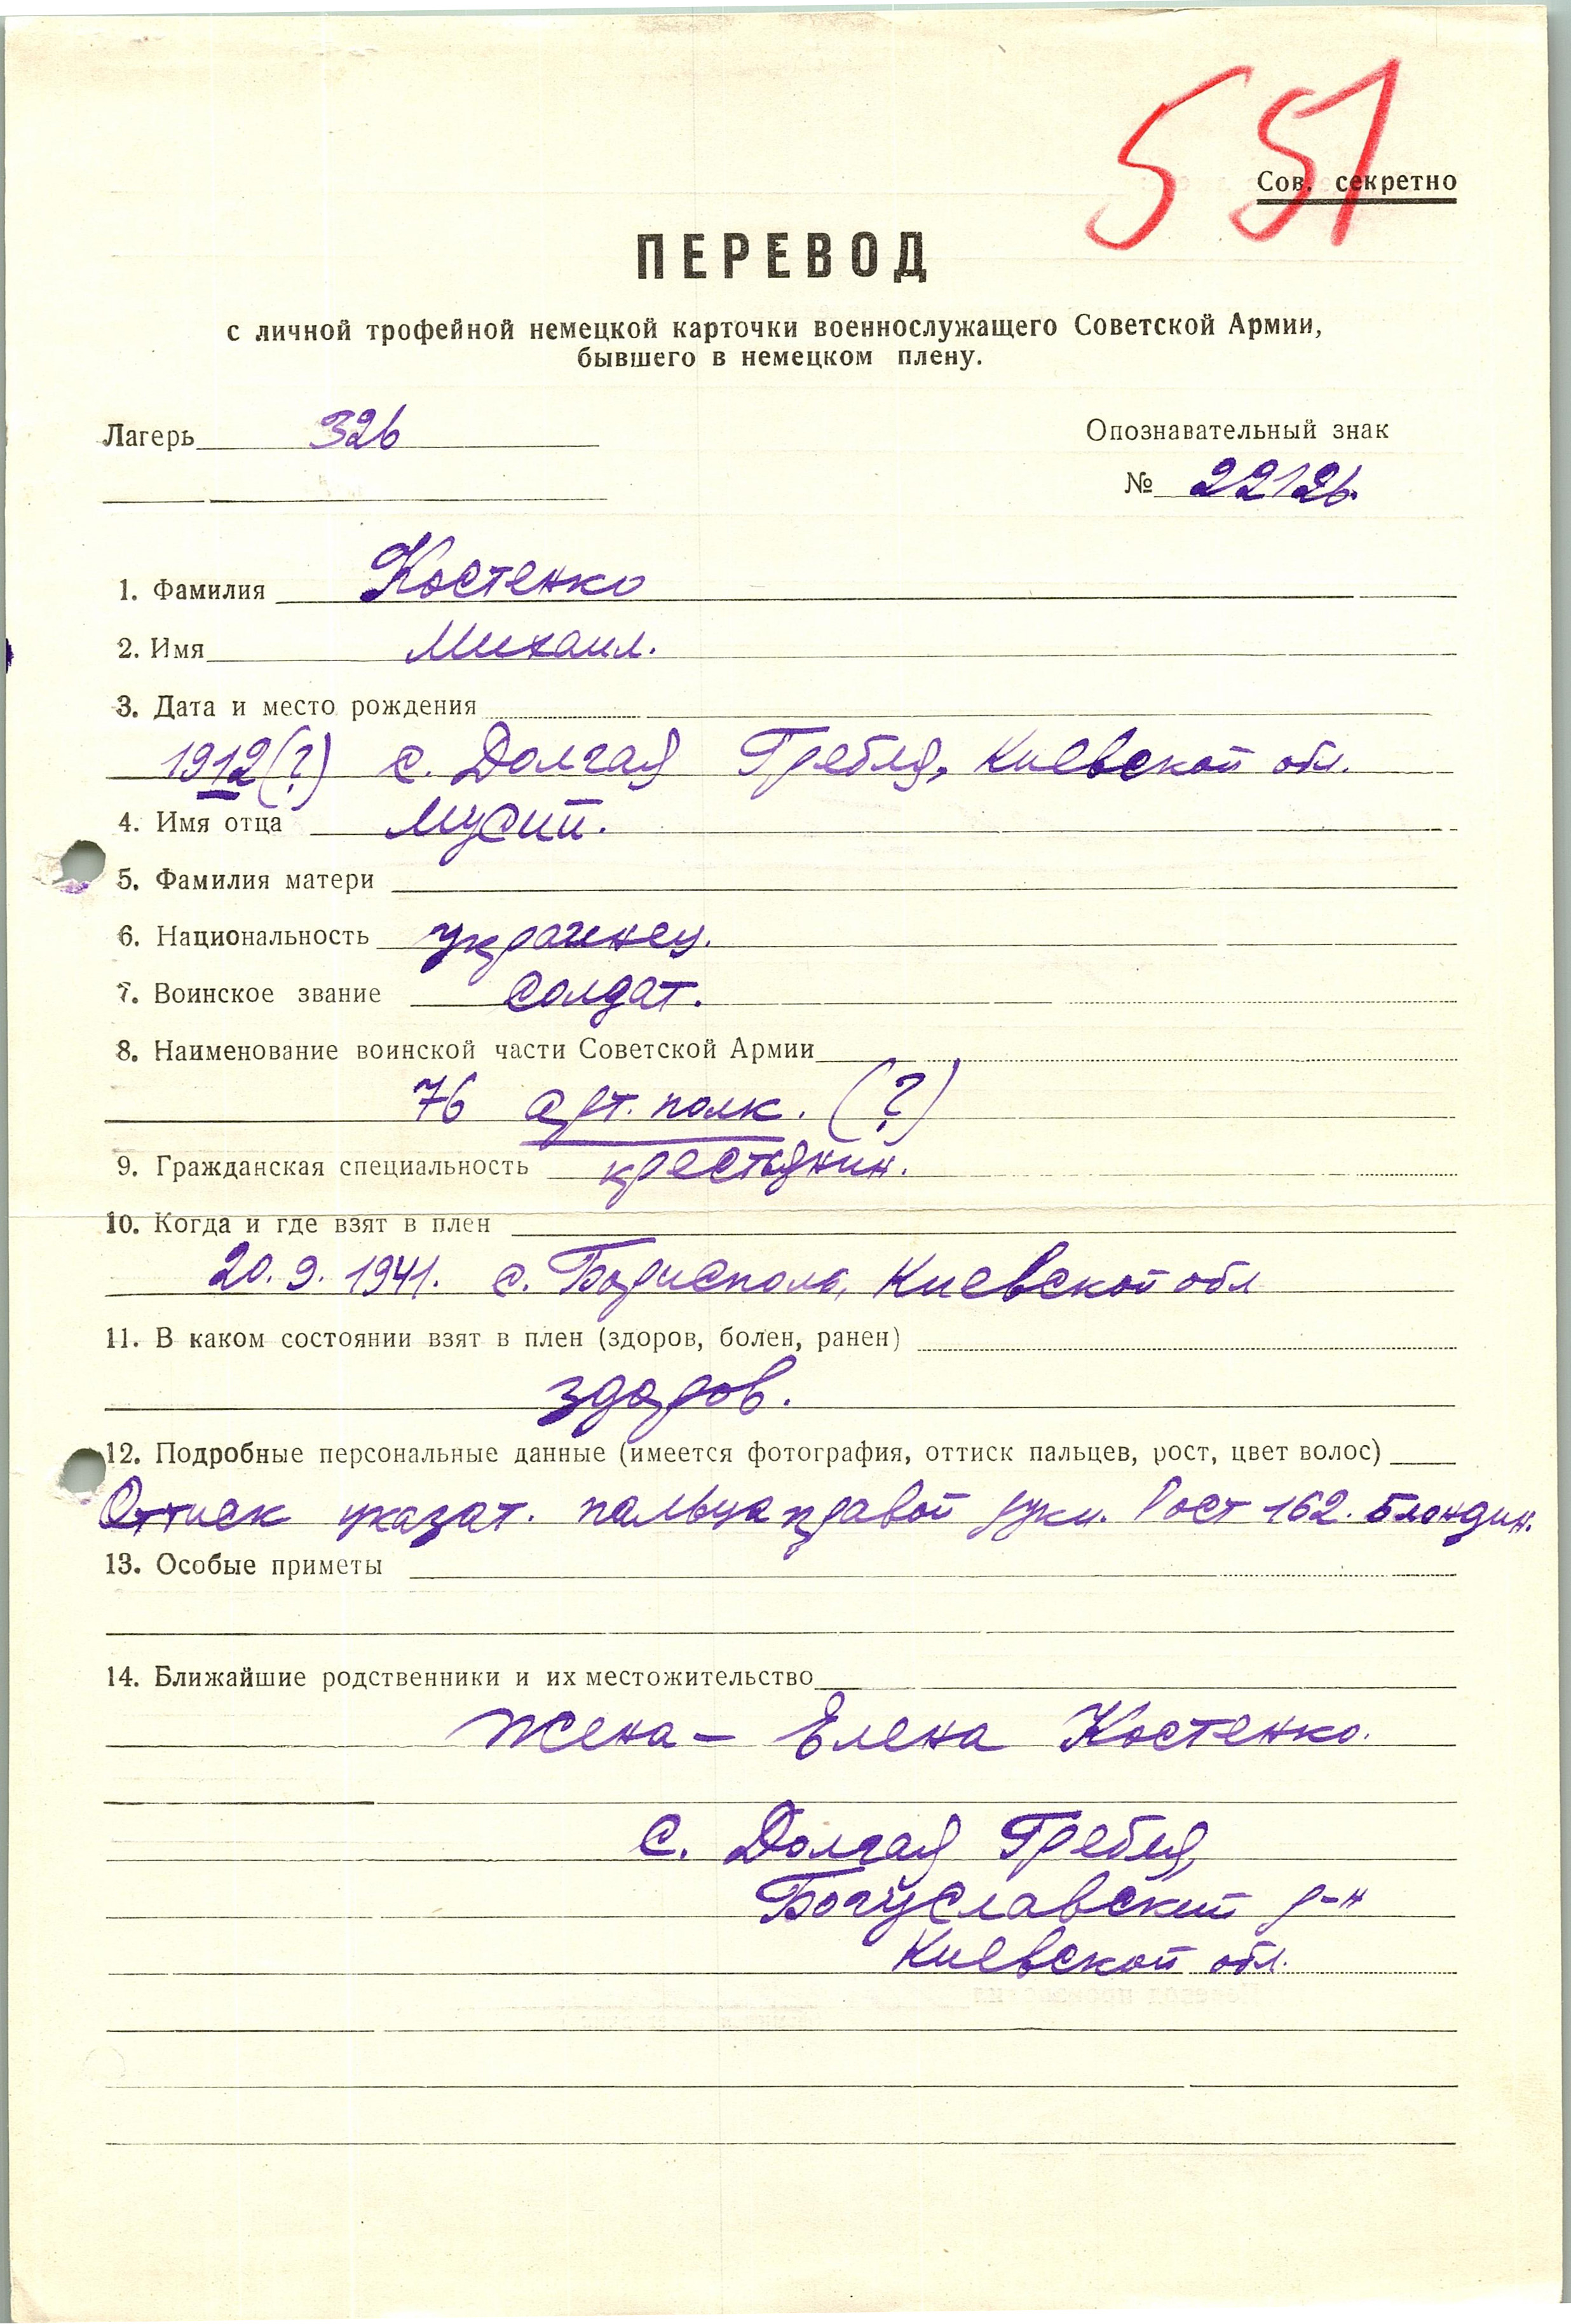 551
Сов. секретно
ПЕРЕВОД
с личной трофейной немецкой карточки военнослужащего Советской Армии,
бывшего в немецком плену.
Лагерь 326
Опознавательный знак
№ 22126.
1. Фамилия Костенко
2. Имя Михаил.
3. Дата и место рождения
1912(?) с. Долгая Гребля, Киевской обл.
4. Имя отца Мусий.
5. Фамилия матери
6. Национальность украинец.
7. Воинское звание солдат.
8. Наименование воинской части Советской Армии
76 арт. полк. (?)
9. Гражданская специальность крестьянин.
10. Когда и где взят в плен
20.9.1941. с. Борисполь, Киевской обл
11. В каком состоянии взят в плен (здоров, болен, ранен)
здоров.
12. Подробные персональные данные (имеется фотография, оттиск пальцев, рост, цвет волос)
Оттиск указат. пальца правой руки. Рост 162. Блондин.
13. Особые приметы
14. Ближайшие родственники и их местожительство
Жена – Елена Костенко.
с. Долгая Гребля,
Богуславский р-н
Киевской обл.